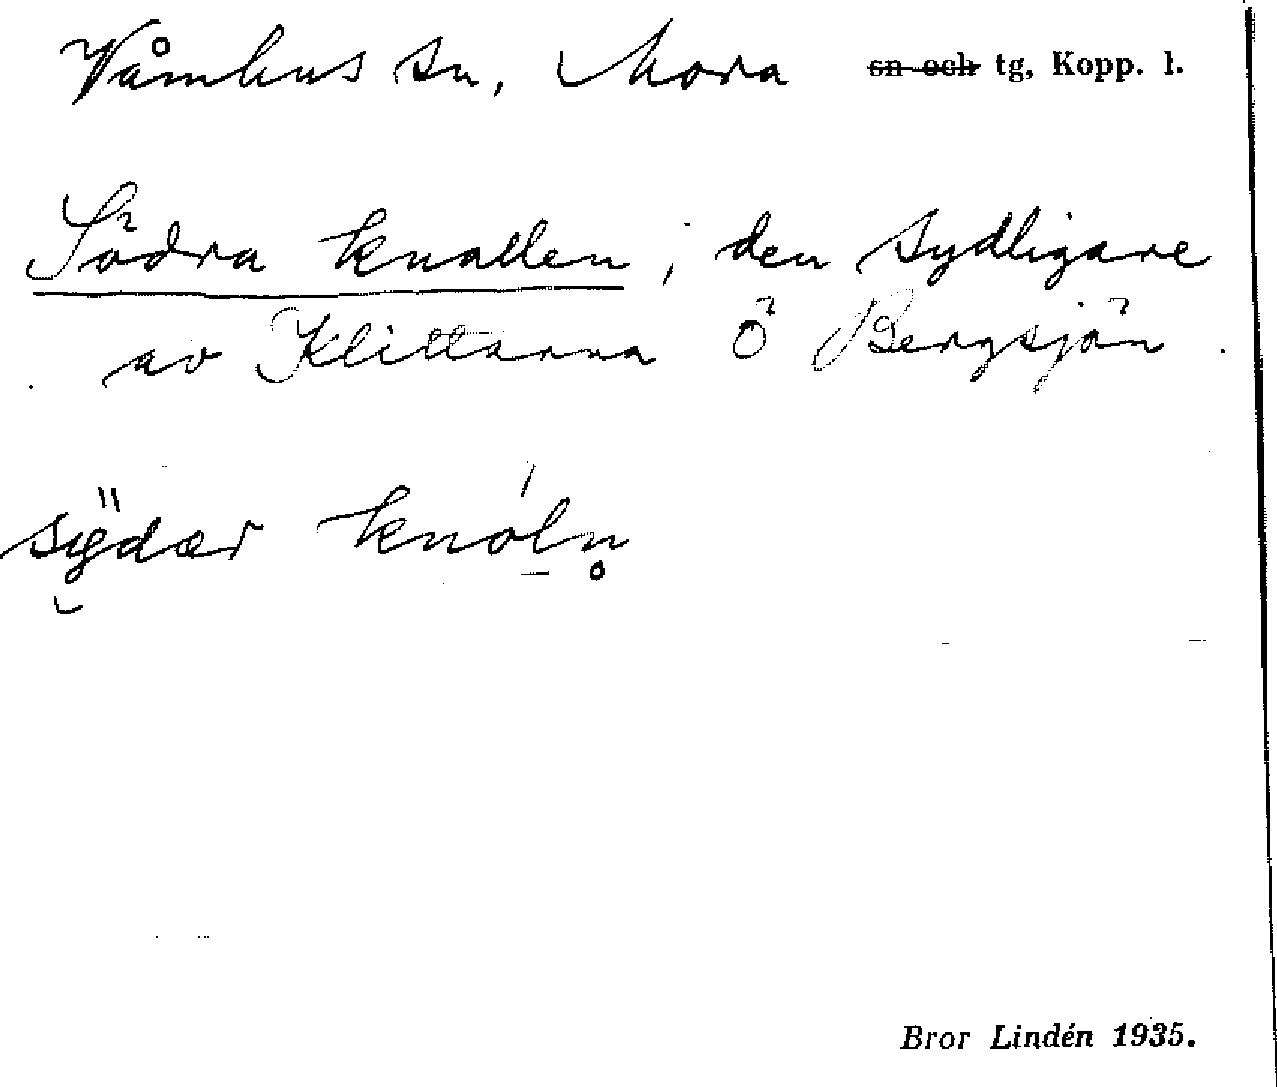 Våmhus sn, Mora sn och tg, Kopp. l.
Södra knallen; den sydligare
av Klittarna Ö Bergsjön.
Bror Lindén 1935.